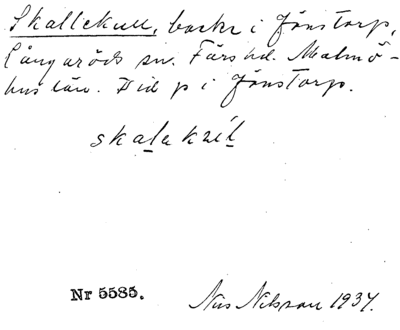 Skallekull, backe i Jönstorp,
Långaröds sn. Färs hd. Malmö-
hus län. Hid p i Jönstorp.
skalakul
Nr 5585.
Nils Nilsson 1937.